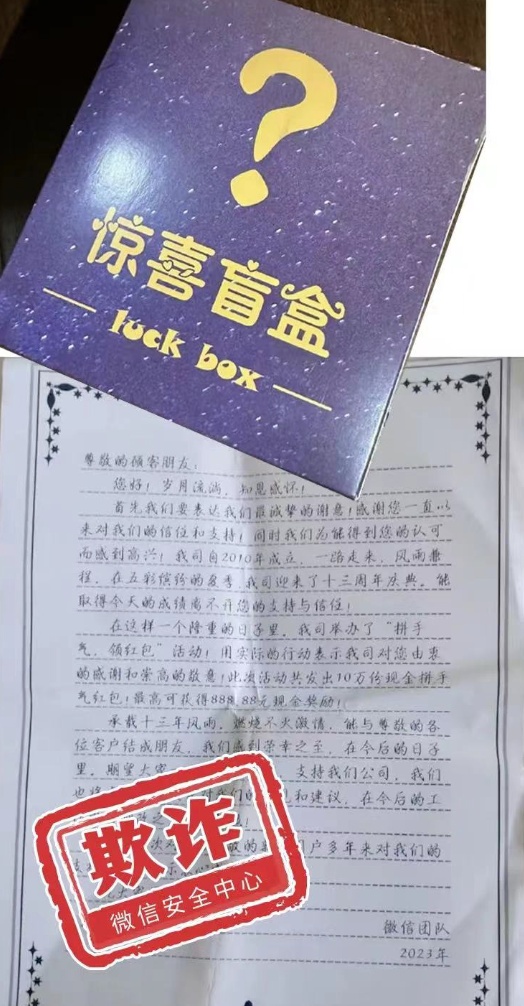 ?
惊喜盲盒
luck box
尊敬的顾客朋友:
您好!岁月流淌,知恩感怀!
首先我们要表达我们最诚挚的谢意!感谢您一直以
来对我们的信任和支持!同时我们为能得到您的认可
而感到高兴!我司自2010年成立,一路走来,风雨兼
程,在五彩缤纷的夏季,我司迎来了十三周年庆典。能
取得今天的成绩离不开您的支持与信任!
在这样一个隆重的日子里,我司举办了“拼手
气,领红包”活动!用实际的行动表示我司对您由衷
的感谢和崇高的敬意!此次活动共发出10万份现金拼手
气红包!最高可获得888.88元现金奖励!
承载十三年风雨,燃烧不灭激情,能与尊敬的各
位客户结成朋友,我们感到荣幸之至,在今后的日子
里,期望大家 支持我们公司,我们
也将 对我们的 和建议,在今后的工
户多年来对我们的
欺诈
微信安全中心
微信团队
2023年